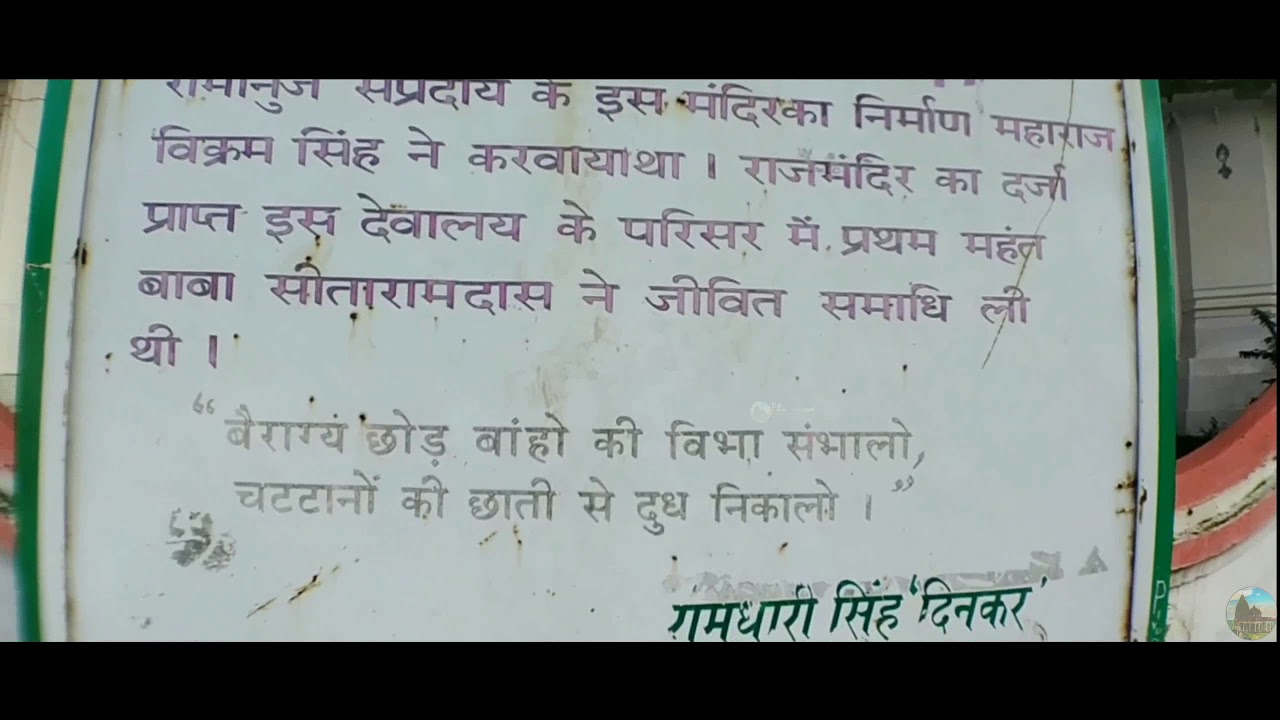 रामानुज संप्रदाय के इस मंदिरका निर्माण महाराज
विक्रम सिंह ने करवायाथा । राजमंदिर का दर्जा
प्राप्त इस देवालय के परिसर में प्रथम महंत
बाबा सीतारामदास ने जीवित समाधि ली
थी ।
“बैराग्यं छोड़ बांहो की विभा संभालो,
चटटानों की छाती से दुध निकालो ।”
रामधारी सिंह ‘दिनकर’